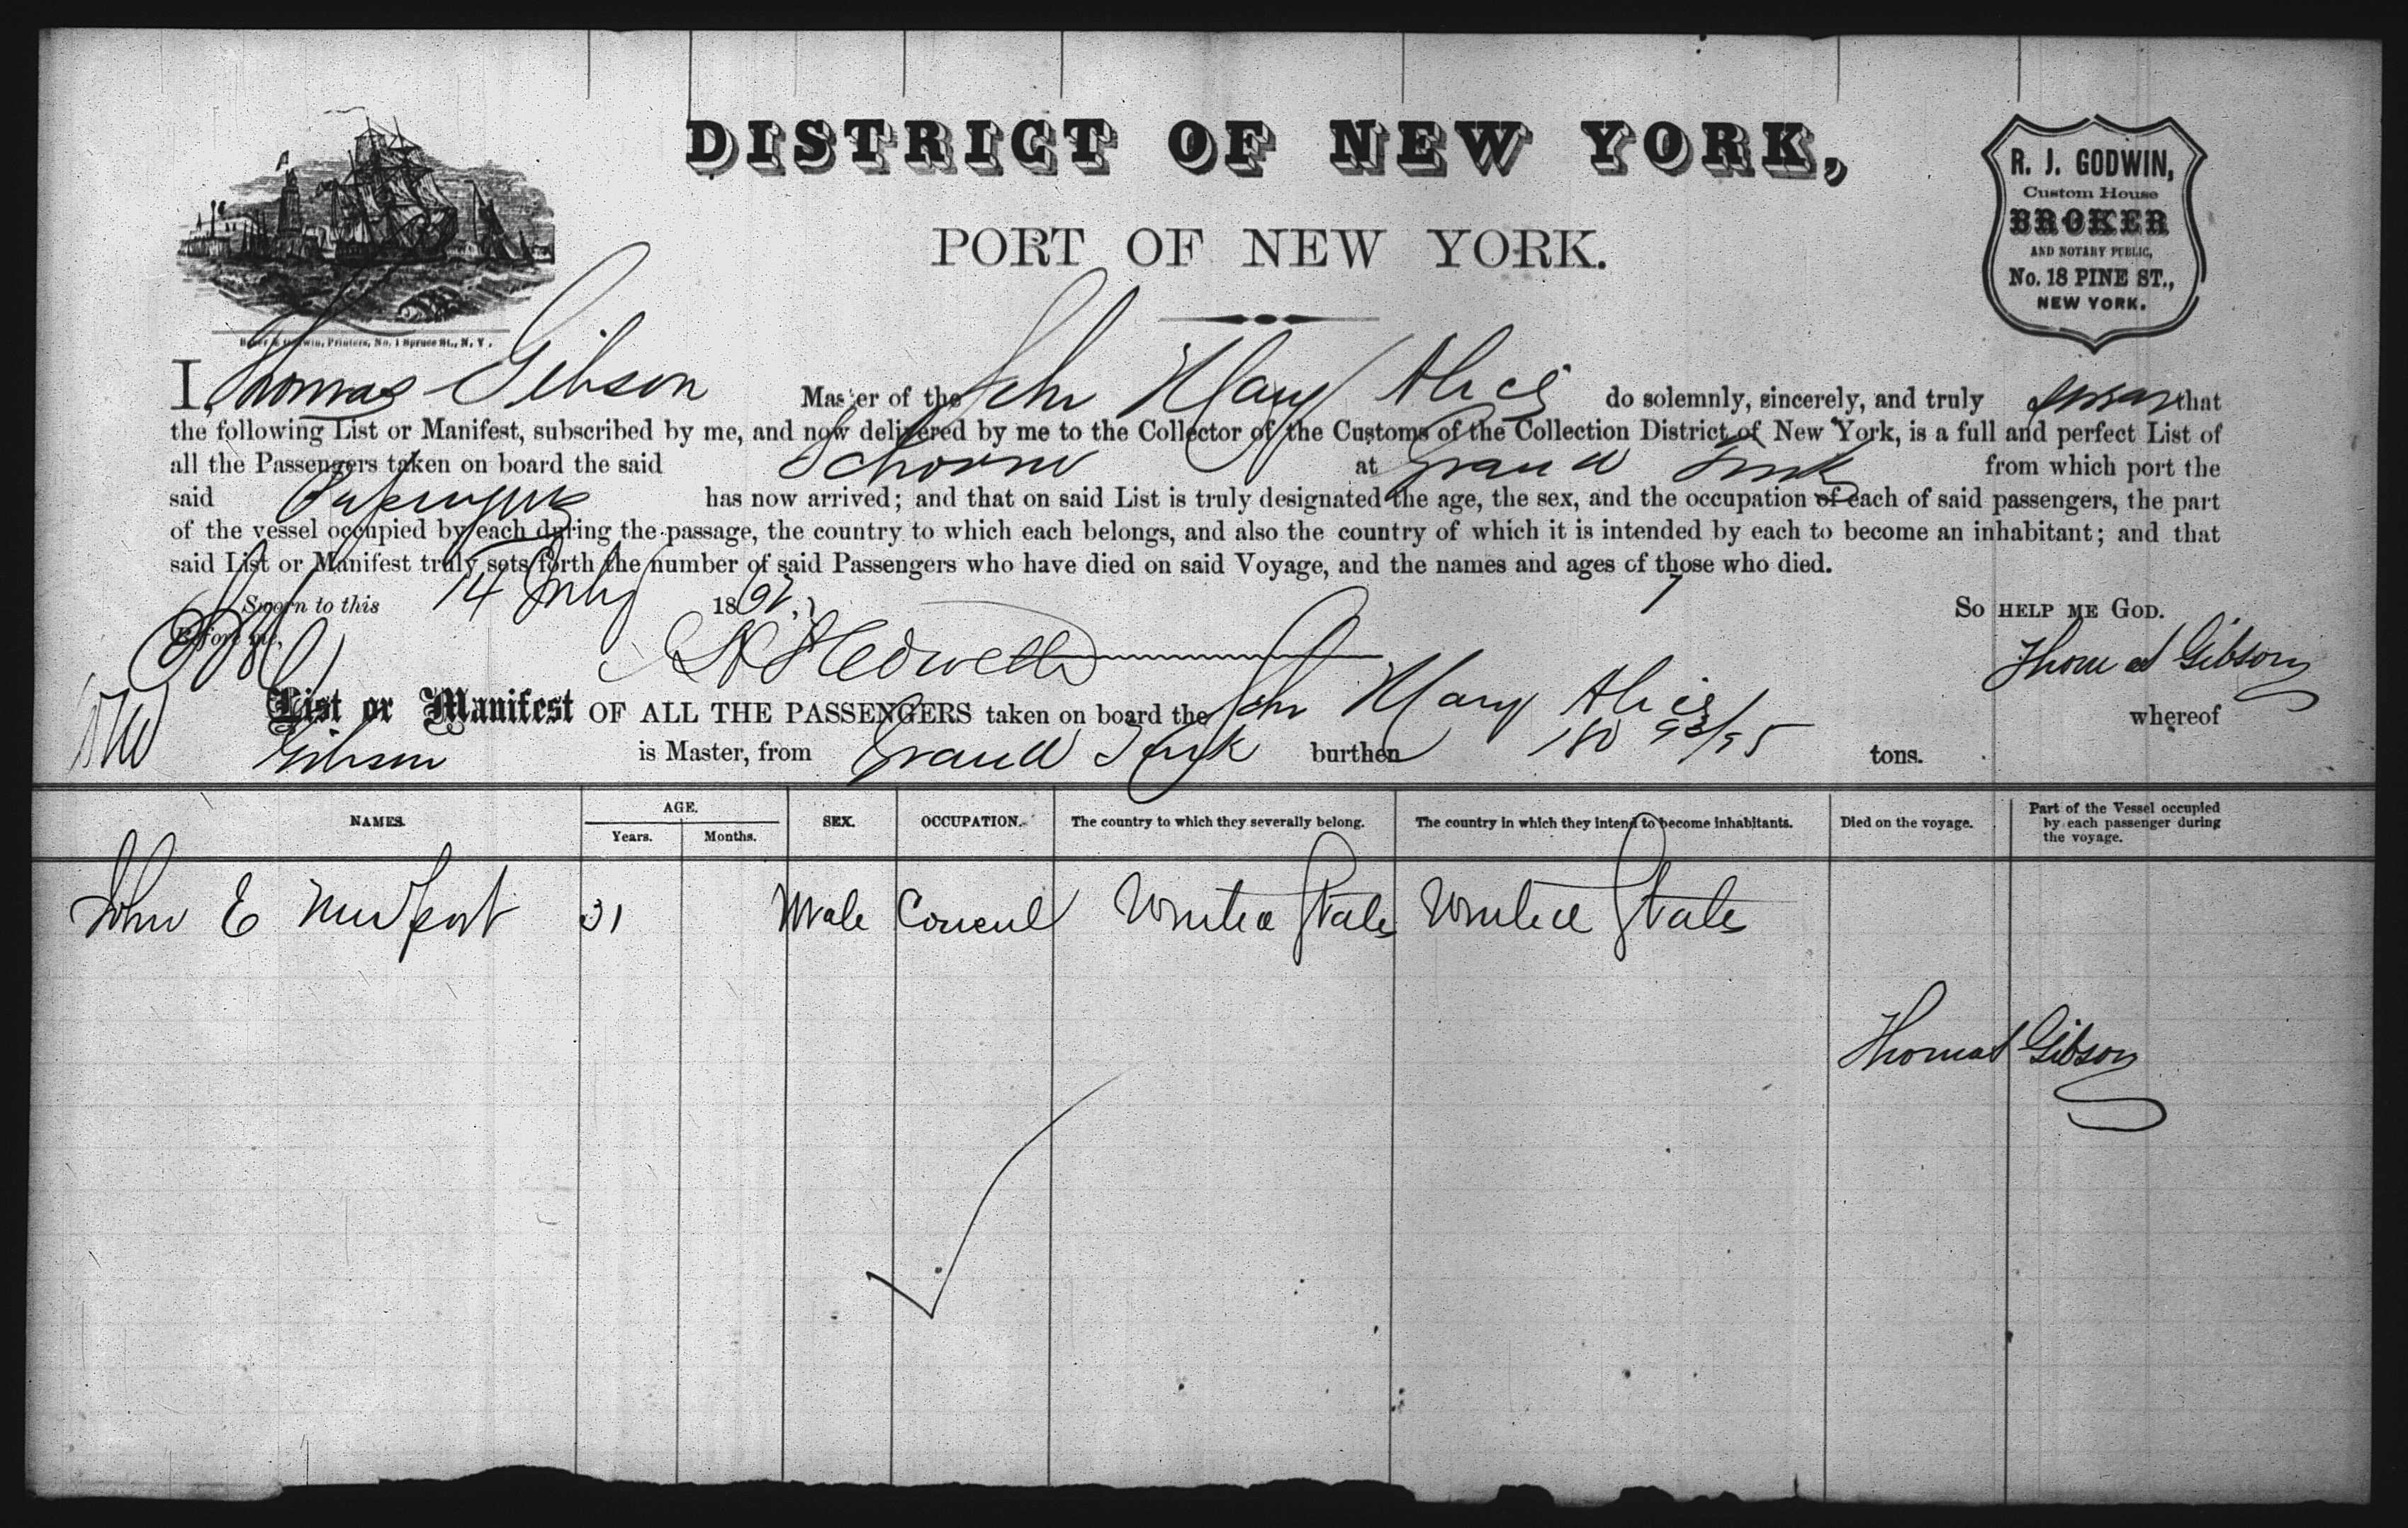 DISTRICT OF NEW YORK,
PORT OF NEW YORK.
R. J. GODWIN,
Custom House
BROKER
AND NOTARY PUBLIC,
No. 18 PINE ST.,
NEW YORK.
Baker & Godwin, Printers, No. 1 Spruce St., N. Y.
I, Thomas Gibson Master of the Schr Mary Alice do solemnly, sincerely, and truly swear that
the following List or Manifest, subscribed by me, and now delivered by me to the Collector of the Customs of the Collection District of New York, is a full and perfect List of
all the Passengers taken on board the said Schooner at Grand Turk from which port the
said has now arrived; and that on said List is truly designated the age, the sex, and the occupation of each of said passengers, the part
of the vessel occupied by each during the passage, the country to which each belongs, and also the country of which it is intended by each to become an inhabitant; and that
said List or Manifest truly sets forth the number of said Passengers who have died on said Voyage, and the names and ages of those who died.
Sworn to this 14 July 1862, So HELP ME GOD.
Before me, Thomas Gibson
List or Manifest OF ALL THE PASSENGERS taken on board the Schr Mary Alice whereof
Gibson is Master, from Grand Turk burthen 180 93/95 tons.
NAMES. AGE. SEX. OCCUPATION. The country to which they severally belong. The country in which they intend to become inhabitants. Died on the voyage. Part of the Vessel occupied by each passenger during the voyage.
Years. Months.
John E Newport 31 Male Consul United States United States
Thomas Gibson